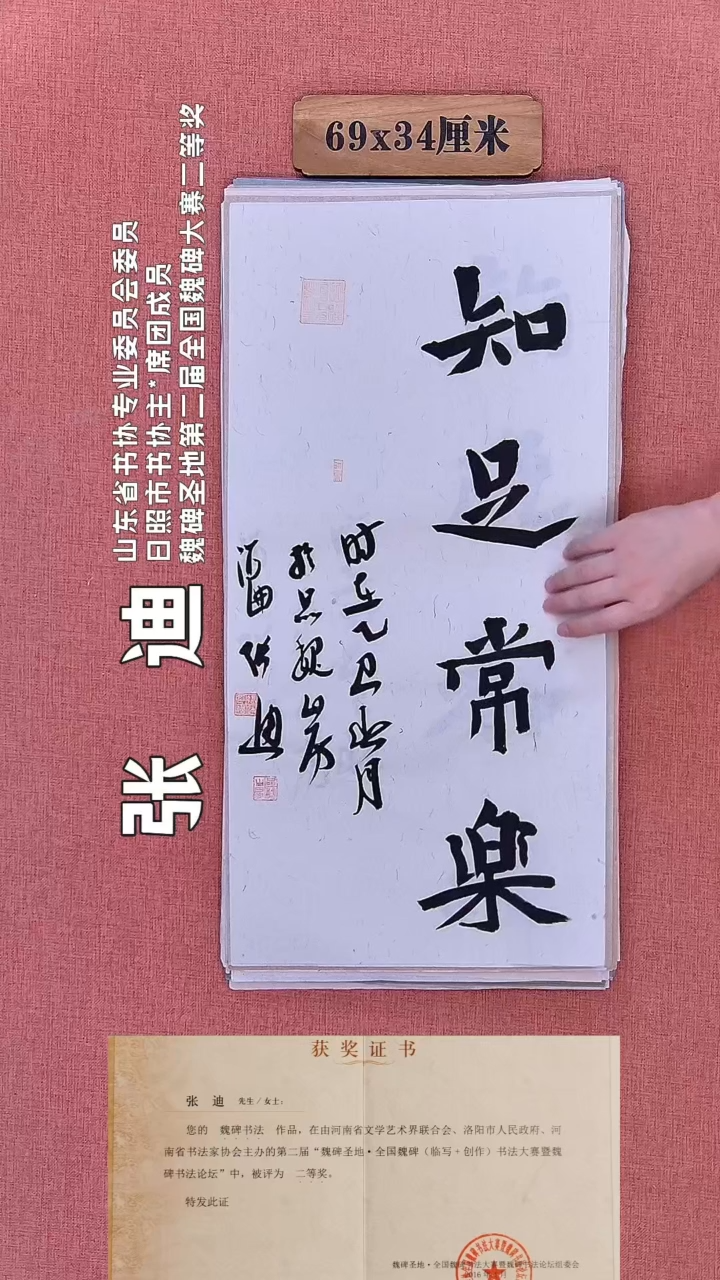 69x34厘米
知足常樂
时在乙巳
月
张迪
山东省书协专业委员会委员
日照市书协主*席团成员
魏碑圣地第二届全国魏碑大赛二等奖
张 迪
获奖证书
张 迪 先生/女士:
您的 魏碑书法 作品,在由河南省文学艺术界联合会、洛阳市人民政府、河
南省书法家协会主办的第二届“魏碑圣地·全国魏碑(临写+创作)书法大赛暨魏
碑书法论坛”中,被评为 二等奖。
特发此证
魏碑圣地·全国魏碑书法大赛暨魏碑书法论坛组委会